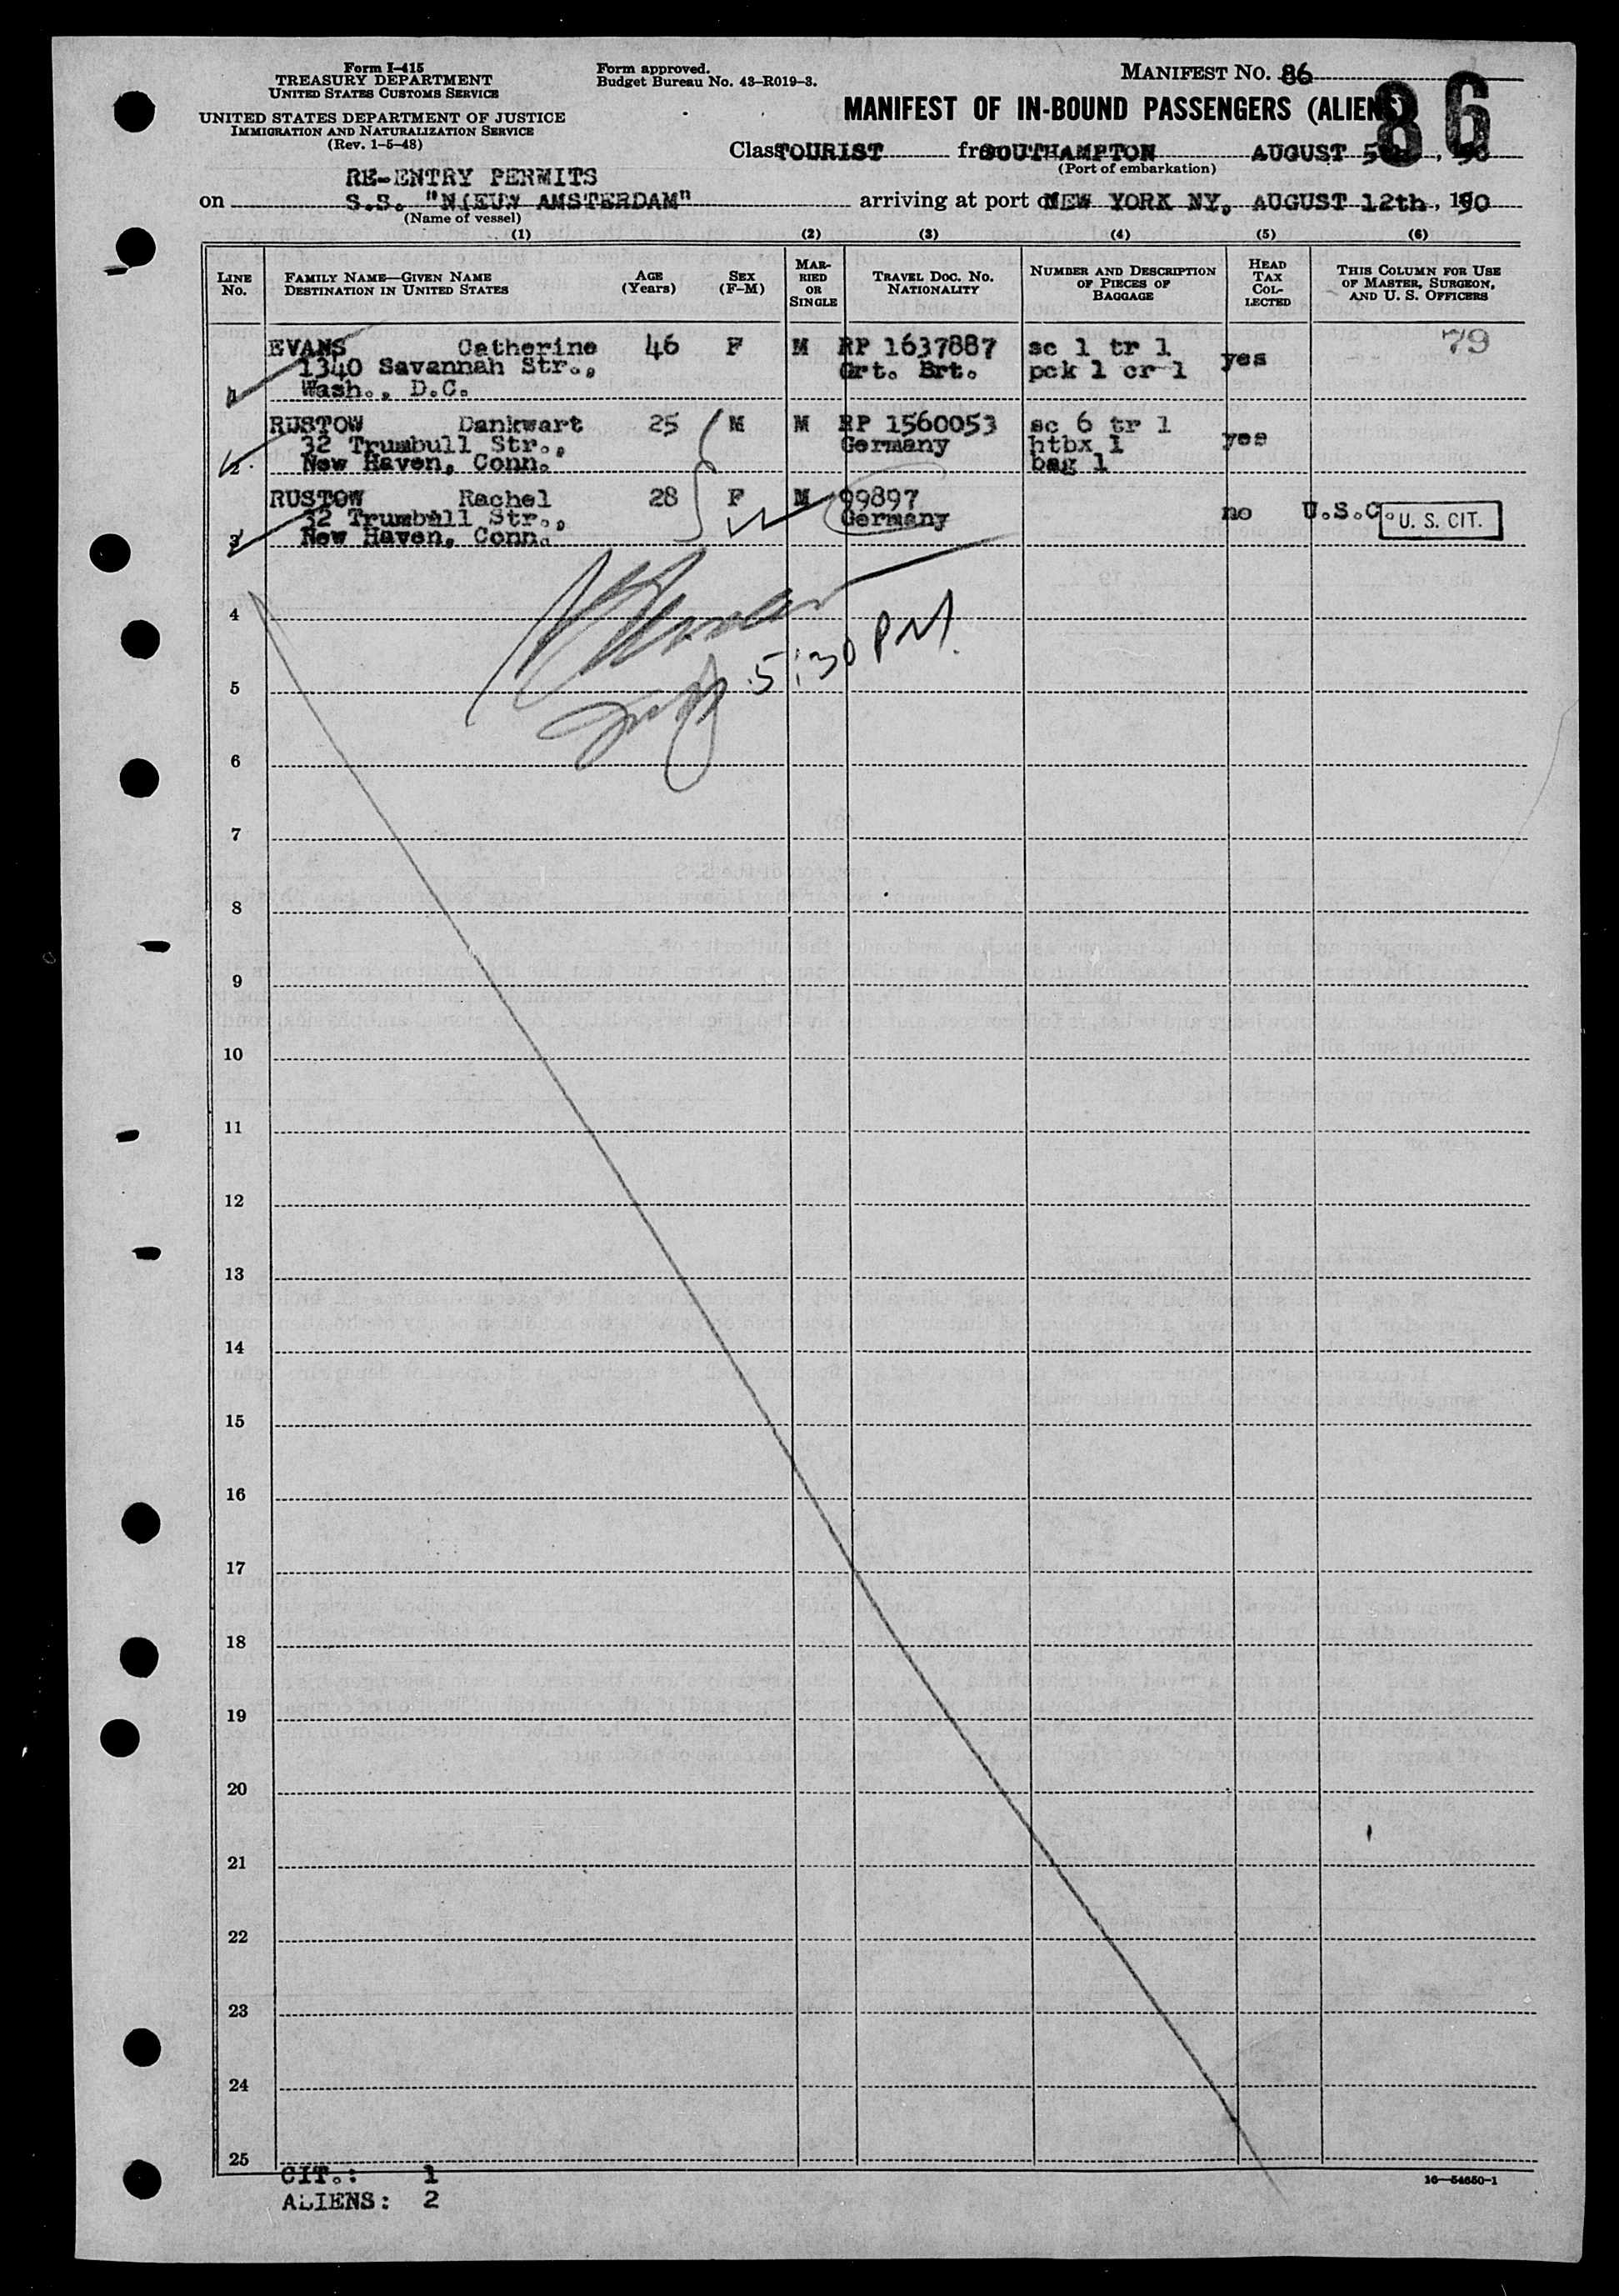 Form I-415
TREASURY DEPARTMENT
UNITED STATES CUSTOMS SERVICE
UNITED STATES DEPARTMENT OF JUSTICE
IMMIGRATION AND NATURALIZATION SERVICE
(Rev. 1-5-48)
Form approved.
Budget Bureau No. 43-R019-3.
MANIFEST NO. 86
MANIFEST OF IN-BOUND PASSENGERS (ALIENS)
86
Class TOURIST from SOUTHAMPTON AUGUST
(Port of embarkation)
RE-ENTRY PERMITS
on S.S. "NIEUW AMSTERDAM" arriving at port of NEW YORK NY, AUGUST 12th, 1950
(Name of vessel)
(1) (2) (3) (4) (5) (6)
LINE No. FAMILY NAME—GIVEN NAME DESTINATION IN UNITED STATES AGE (Years) SEX (F-M) MARRIED OR SINGLE TRAVEL DOC. NO. NATIONALITY NUMBER AND DESCRIPTION OF PIECES OF BAGGAGE HEAD TAX COLLECTED THIS COLUMN FOR USE OF MASTER, SURGEON, AND U. S. OFFICERS
EVANS Catherine 46 F M RP 1637887 sc 1 tr 1 yes 79
1340 Savannah Str., Grt. Brt. pck 1 cr 1
1 Wash., D.C.
RUSTOW Dankwart 25 M M RP 1560053 sc 6 tr 1 yes
32 Trumbull Str., Germany htbx 1
2 New Haven, Conn. bag 1
RUSTOW Rachel 28 F M 99897 no U.S.C. U. S. CIT.
32 Trumbull Str., Germany
3 New Haven, Conn.
4
5:30 PM.
5
6
7
8
9
10
11
12
13
14
15
16
17
18
19
20
21
22
23
24
25
CIT.: 1
ALIENS: 2
16—54650-1